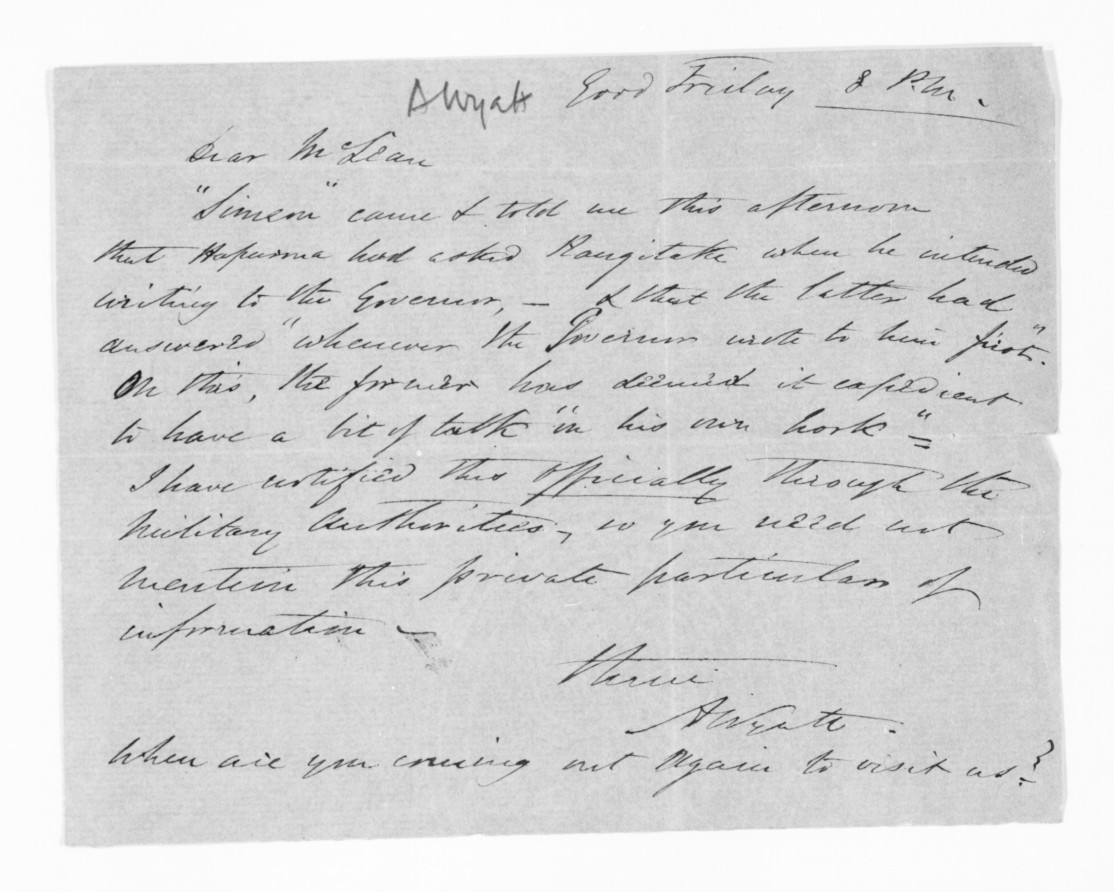 AWyatt Good Friday 8 P.M.
Dear McLean
"Simeon" came & told me this afternoon
that Hapurona had asked Rangitake when he intended
writing to the Governor, — & that the latter had
answered "whenever the Governor wrote to him first".
On this, the former has deemed it expedient
to have a bit of talk "on his own hook" =
I have notified this officially through the
Military Authorities, so you need not
mention this private particular of
information —
AWyatt.
When are you coming out again to visit us?